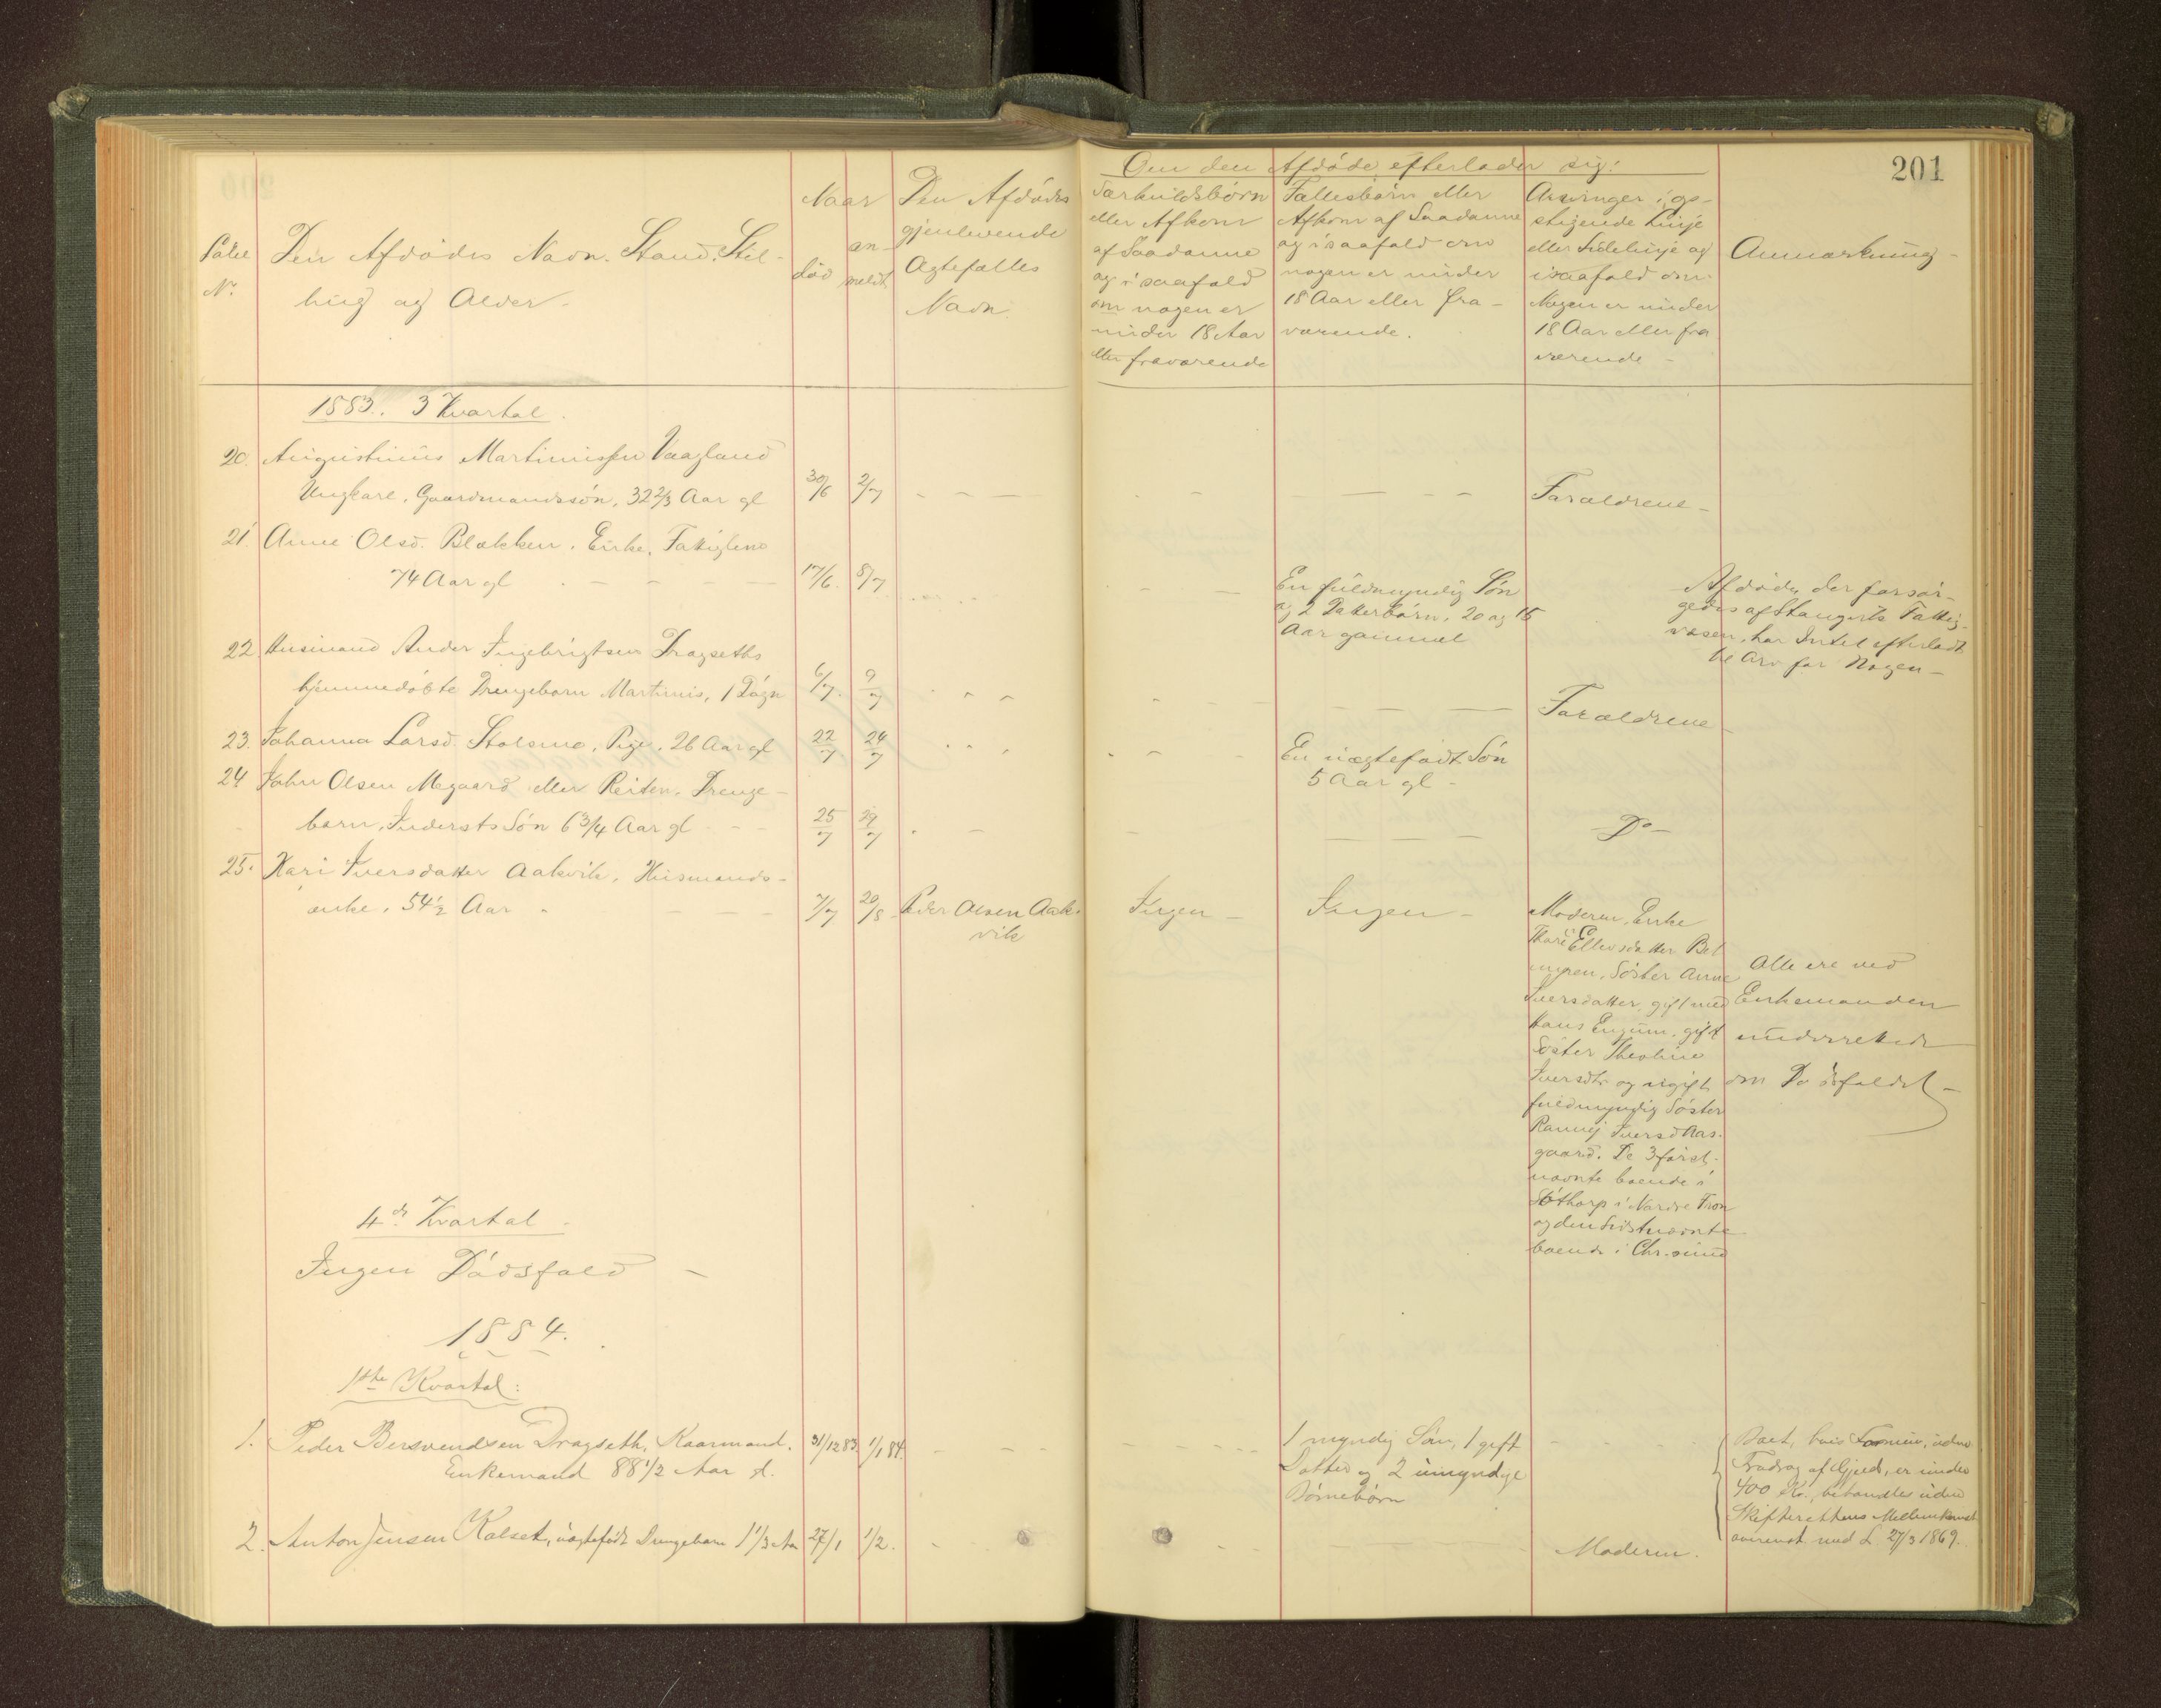 201
Om den Afdöde efterlader sig:
Löbe
No.
Den Afdödes Navn. Stand. Stil-
ling og Alder -
Naar
död
an-
meldt
Den Afdödes
gjenlevende
Ægtefælles
Navn.
Særkuldsbörn
eller Afkom
af Saadanne
og i saafald
om nogen er
under 18 Aar
eller fraværende
Fællesbörn eller
Afkom af Saadanne
og i saafald om
nogen er under
18 Aar eller fra-
værende.
Arvinger i op-
stigende Linje
eller Sidelinje og
i saafald om
Nogen er under
18 Aar eller fra
værende -
Anmærkning -
1883. 3 Kvartal.
20. Augustinus Martinussen Vaagland
Ungkarl, Gaardmandssön, 32 2/3 Aar gl 30/6 2/7 Forældrene -
21. Anne Olsd. Blekken. Enke, Fattiglem
74 Aar gl 17/6. 8/7
En fuldmyndig Sön
og 2 Datterbörn, 20 og 15
Aar gammel
Afdöde, der forsör-
gedes af Stangviks Fattig-
væsen, har Intet efterladt
til Arv for Nogen -
22. Husmand Ander Ingebrigtsen Dragseths
hjemmedöbte Drengebarn Martinus, 1 Dögn 6/7. 9/7 Forældrene
23. Johanna Larsd. Stolsmo, Pige, 26 Aar gl 22/7 24/7
En uægtefödt Sön
5 Aar gl -
24 John Olsen Megaard eller Reiten, Drenge-
barn, Inderstssön 6 3/4 Aar gl 25/7 29/7 Do -
25. Kari Iversdatter Aakvik, Husmands-
enke, 54 1/2 Aar 7/7 20/8 Peder Olsen Aak-
vik
Ingen - Ingen -
Moderen, Enke
Ellevsdatter
Söster Anne
Iversdatter, gift med
Hans Engum, gift
Söster Theoline
Iversdtr og ugift
fuldmyndig Söster
Rannej Iversd Aas-
gaard. De 3 först-
nævnte boende i
Södtorp i Nordre Fron
og den Sidstnævnte
boende i Chr.sund
Alle ere ved
Enkemanden
underrettede
om Dödsfaldet -
4de Kvartal -
Ingen Dödsfald -
1884.
1ste Kvartal:
1. Peder Bersvendsen Dragseth, Kaarmand.
Enkemand 88 1/2 Aar gl. 31/12 83. 1/1 84.
1 myndig Sön, 1 gift
Datter og 2 umyndige
Börnebörn
Boet, hvis Formue, uden
Fradrag af Gjæld, er under
400 Kr., behandles uden
Skifterettens Mellemkomst
overenst med L 27/3 1869.
2. Anton Jensen Kalset, uægtefödt Drengebarn 1 1/3 Aar 27/1 1/2. Moderen.